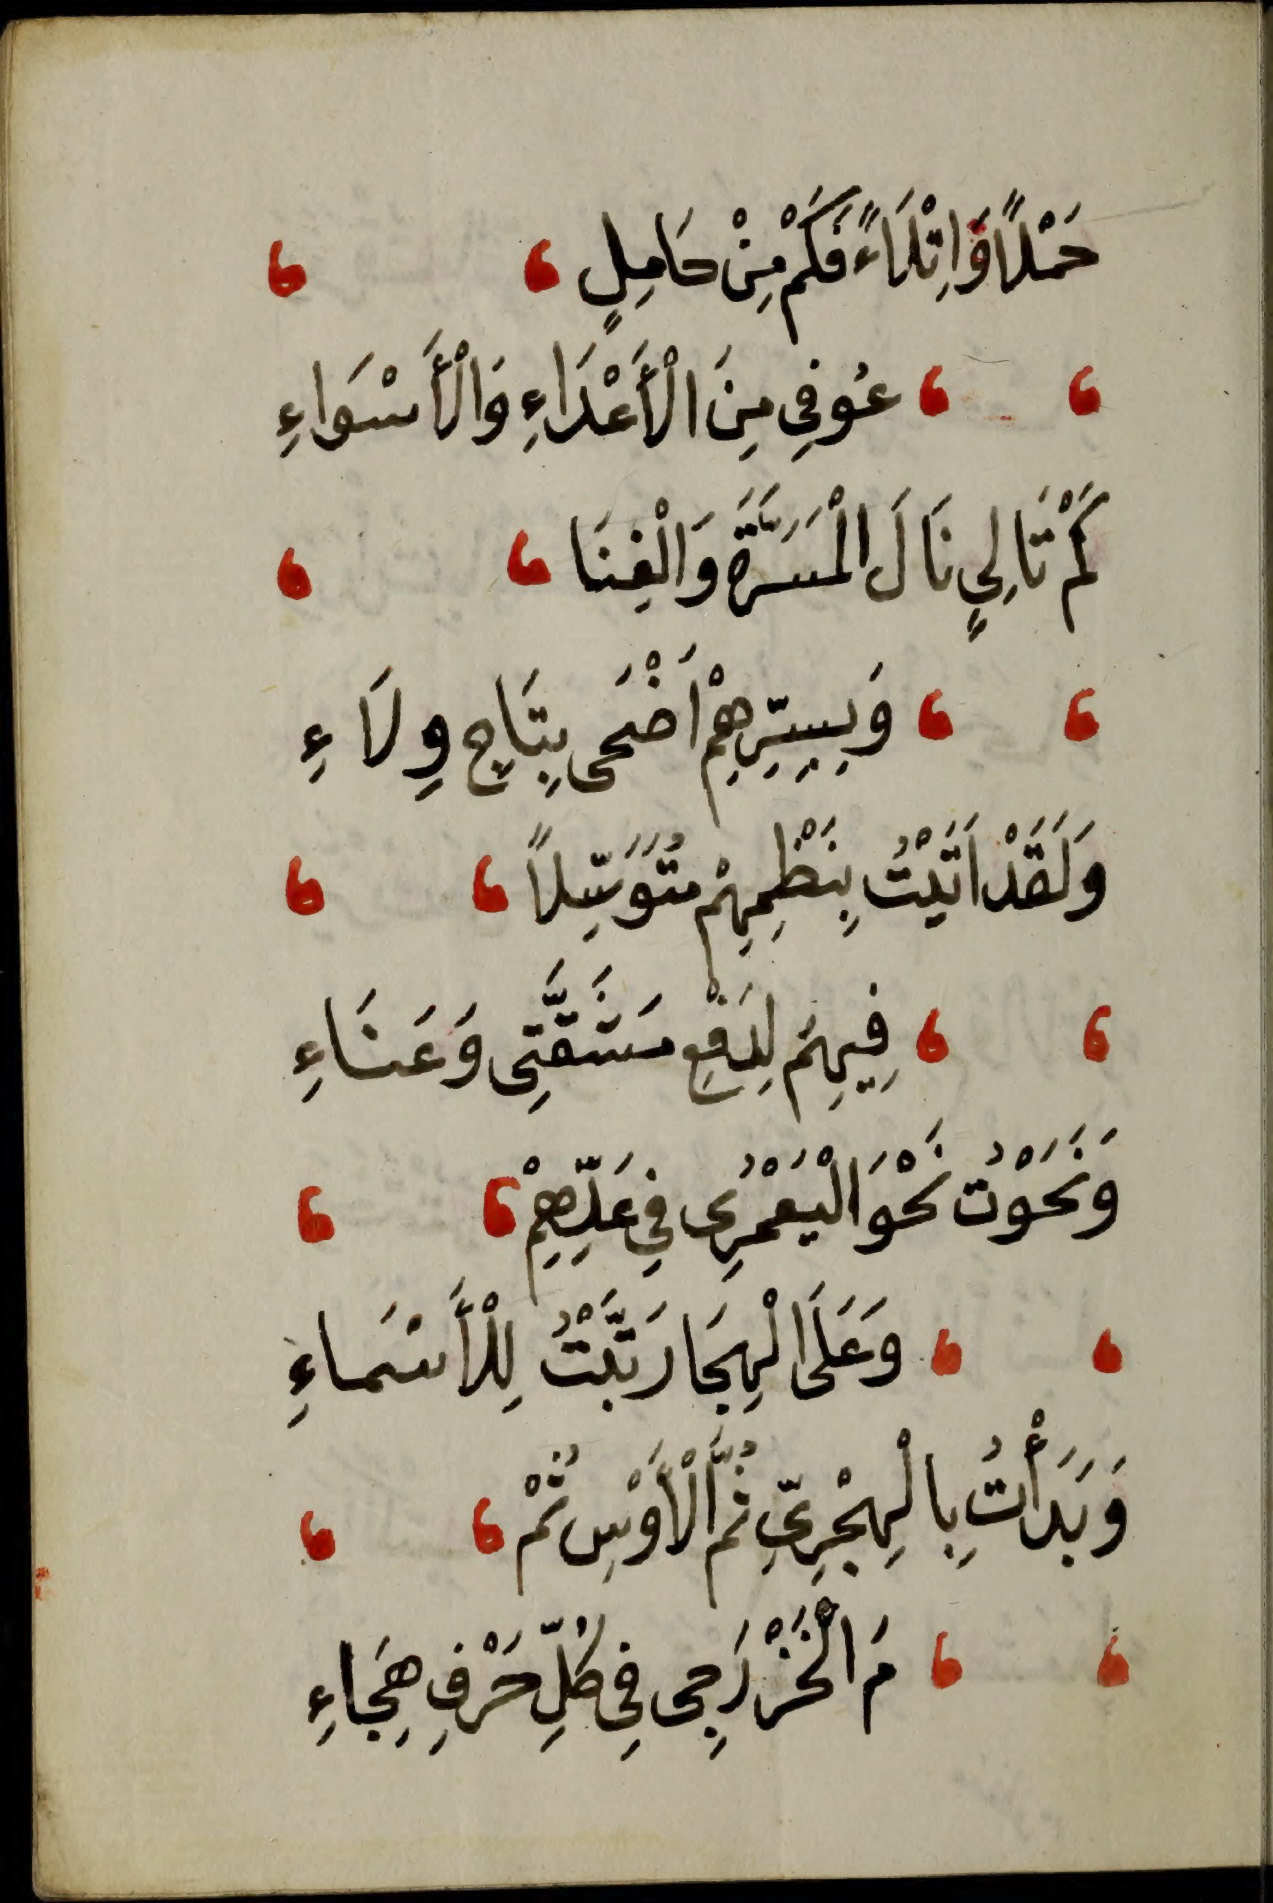 حَمْلًا وَاِتْلَاءً فَكَمْ مِنْ حَامِلٍ
عُوفِي مِنَ الْأَعْدَاءِ وَالْأَسْوَاءِ
كَمْ تَالِيٍ نَالَ الْمَسَرَّةَ وَالْغِنَا
وَبِسِرِّهِمْ اَضْحَى بِتَاجِ وِلَاءِ
وَلَقَدْ اَتَيْتُ بِنَظْمِهِمْ مُتَوَسِّلًا
فِيهِمْ لِدَفْعِ مَشَقَّتِى وَعَنَاءِ
وَنَحَوْتُ نَحْوَ الْيَعْمُرِى فِي عَدِّهِمْ
وَعَلَى الْهِجَا رَتَّبْتُ لِلْأَسْمَاءِ
وَبَدَأْتُ بِالْهِجْرِيِّ ثُمَّ الْأَوْسِ ثُمْ
مَ الْخَزْرَجِى فِى كُلِّ حَرْفِ هِجَاءِ